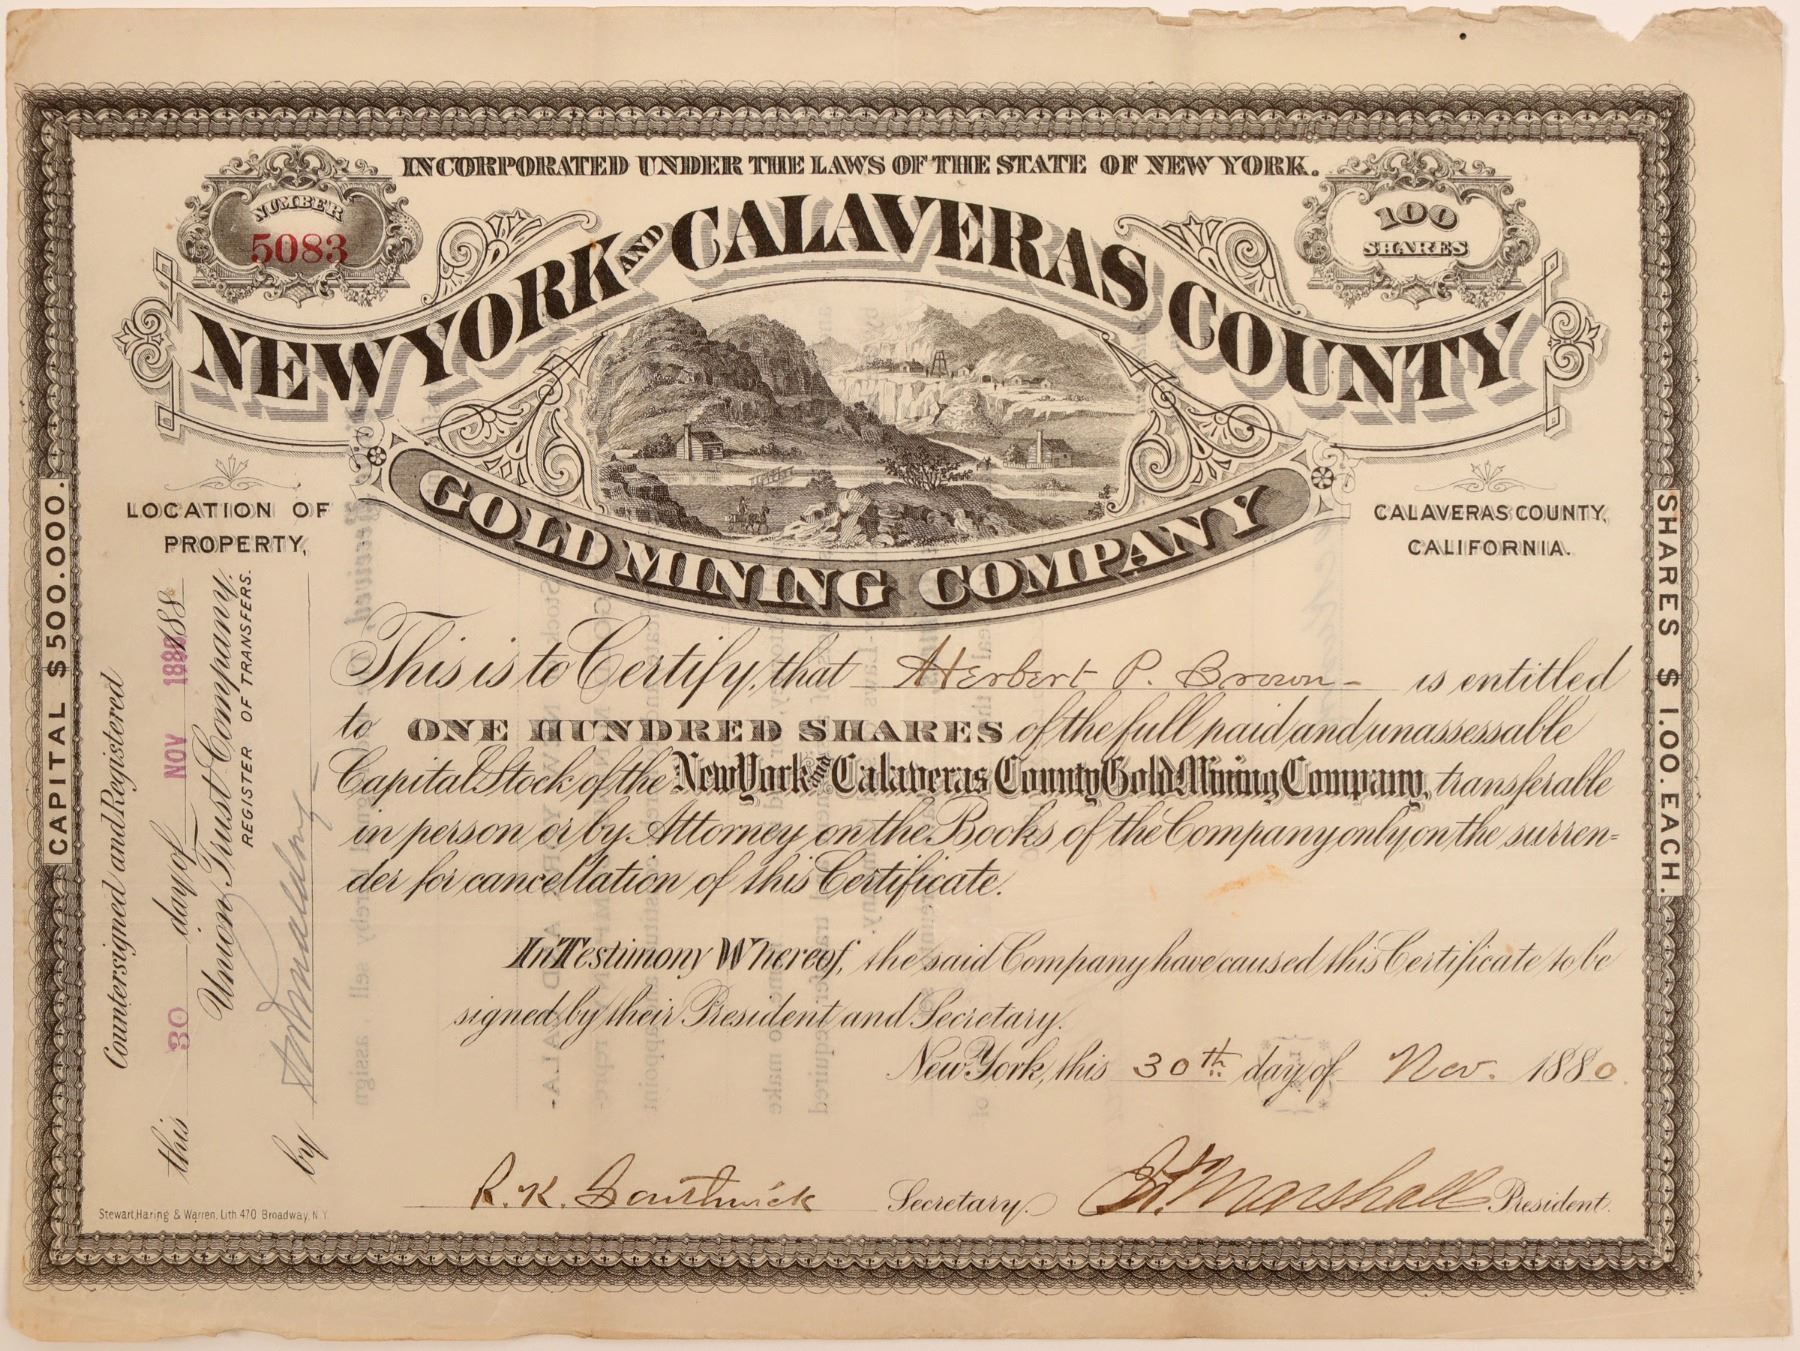 INCORPORATED UNDER THE LAWS OF THE STATE OF NEW YORK.
NUMBER
5083
100
SHARES
NEW YORK AND CALAVERAS COUNTY
GOLD MINING COMPANY
LOCATION OF
PROPERTY,
CALAVERAS COUNTY,
CALIFORNIA.
CAPITAL $500.000.
SHARES $1.00. EACH.
Countersigned and Registered
this 30 day of NOV 188
Union Trust Company.
REGISTER OF TRANSFERS.
by
This is to Certify, that Herbert P. Brown is entitled
to ONE HUNDRED SHARES of the full paid and unassessable
Capital Stock of the New York and Calaveras County Gold Mining Company, transferable
in person or by Attorney on the Books of the Company only on the surren=
der for cancellation of this Certificate.
In Testimony Whereof, the said Company have caused this Certificate to be
signed by their President and Secretary.
New York, this 30th day of Nov. 1880
R. K. Southwick Secretary. Marshall President.
Stewart, Haring & Warren, Lith. 470 Broadway, N.Y.